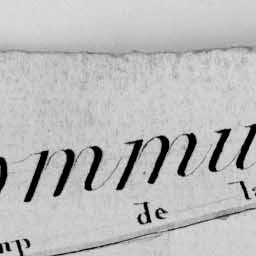 ommu
de la
mp